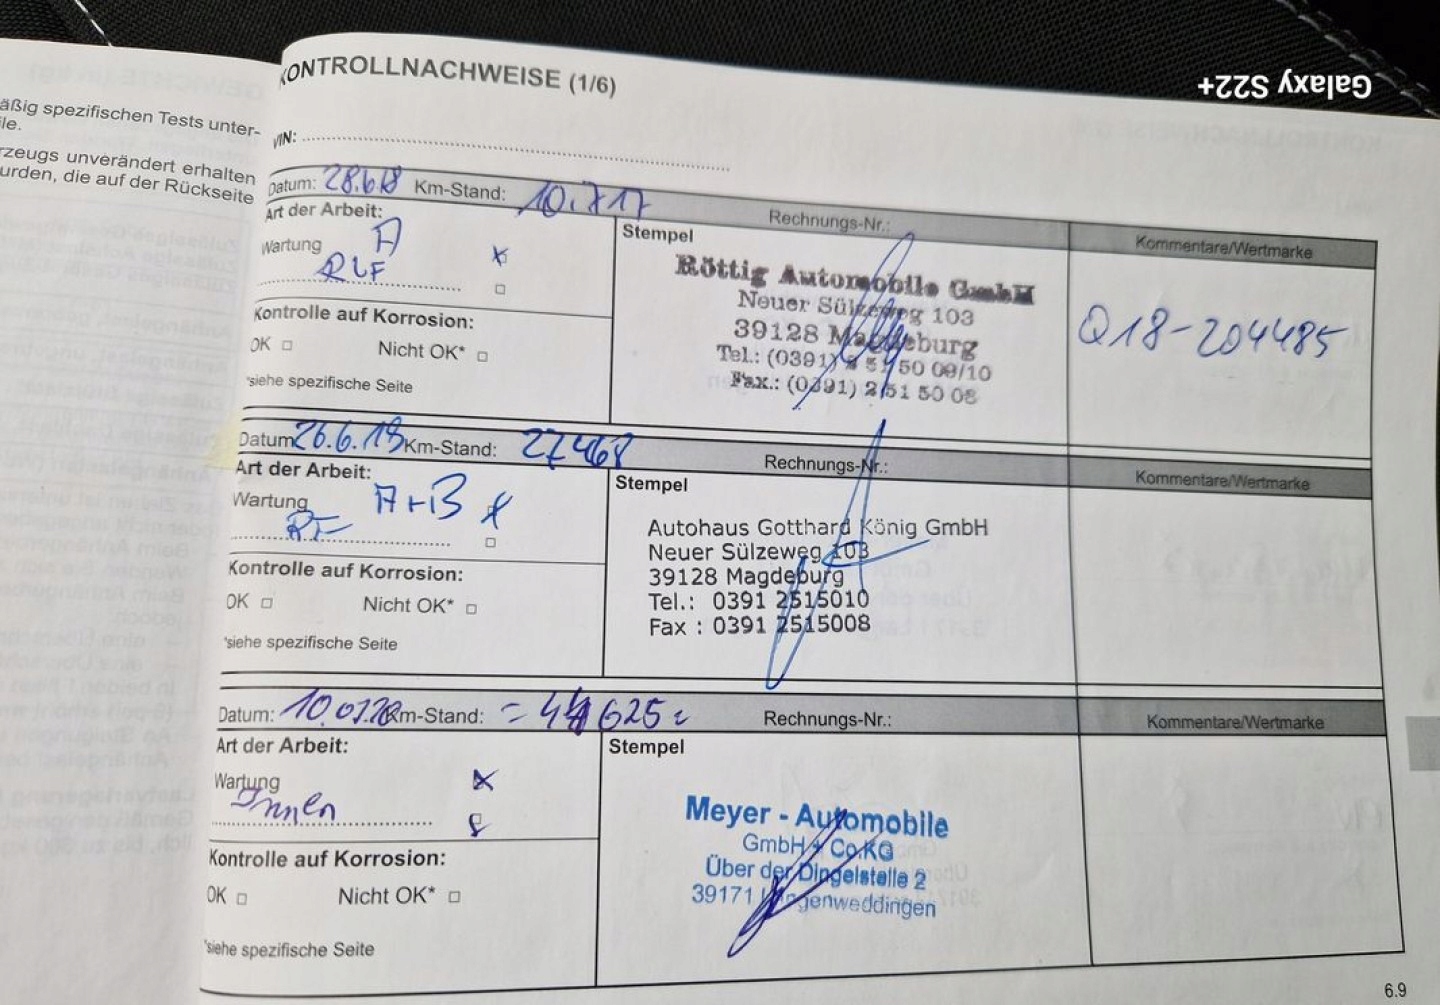 Galaxy S22+
äßig spezifischen Tests unter-
ile.
rzeugs unverändert erhalten
urden, die auf der Rückseite
KONTROLLNACHWEISE (1/6)
VIN:
Datum: 28.6.18 Km-Stand: 10.717 Rechnungs-Nr.: Kommentare/Wertmarke
Art der Arbeit:
Wartung A x
Stempel
Röttig Automobile GmbH
Neuer Sülzeweg 103
39128 Magdeburg
Tel.: (0391) 2 51 50 09/10
Fax.: (0391) 2 51 50 08
Q18-204485
Kontrolle auf Korrosion:
OK □ Nicht OK* □
*siehe spezifische Seite
Datum: 26.6.19 Km-Stand: 27468 Rechnungs-Nr.: Kommentare/Wertmarke
Art der Arbeit:
Wartung A+B x
Stempel
Autohaus Gotthard König GmbH
Neuer Sülzeweg 103
39128 Magdeburg
Tel.: 0391 2515010
Fax : 0391 2515008
Kontrolle auf Korrosion:
OK □ Nicht OK* □
*siehe spezifische Seite
Datum: 10.07.20 Km-Stand: Rechnungs-Nr.: Kommentare/Wertmarke
Art der Arbeit:
Wartung x
Stempel
Meyer - Automobile
GmbH + Co.KG
Über der Dingelstelle 2
39171 Langenweddingen
Kontrolle auf Korrosion:
OK □ Nicht OK* □
*siehe spezifische Seite
6.9